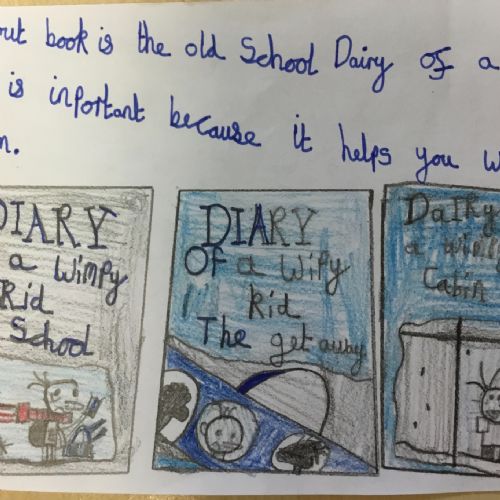 out book is the old School Dairy of a
is inportant because it helps you w
n.
DIARY
a Wimpy
Kid
School
DIARY
Of a Wipy
Kid
The get away
Dairy
a wimp
Cabin